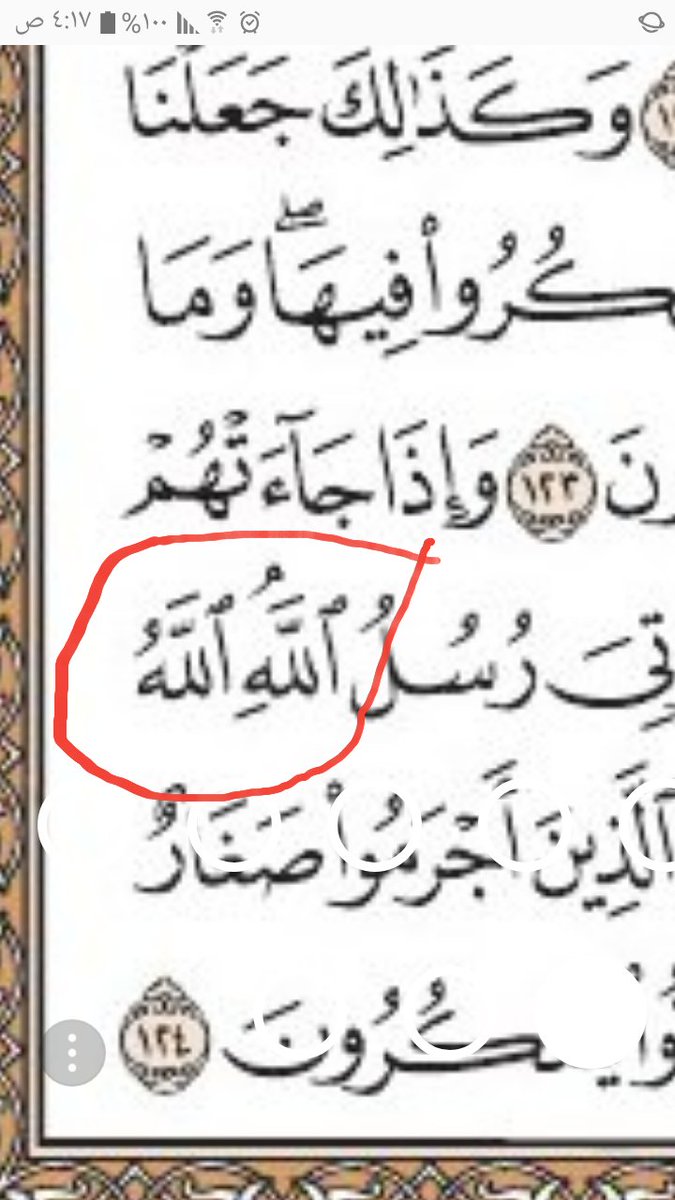 ٪١٠٠ ٤:١٧ ص
وَكَذَٰلِكَ جَعَلْنَا
ـكُرُوا۟ فِيهَا ۖ وَمَا
نَ ١٢٣ وَإِذَا جَآءَتْهُمْ
تِىَ رُسُلُ ٱللَّهِ ۘ ٱللَّهُ
ٱلَّذِينَ أَجْرَمُوا۟ صَغَارٌ
وا۟ يَمْكُرُونَ ١٢٤